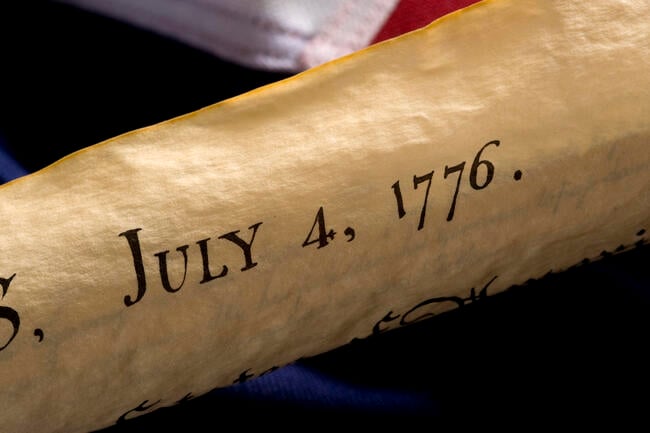 S, JULY 4, 1776.